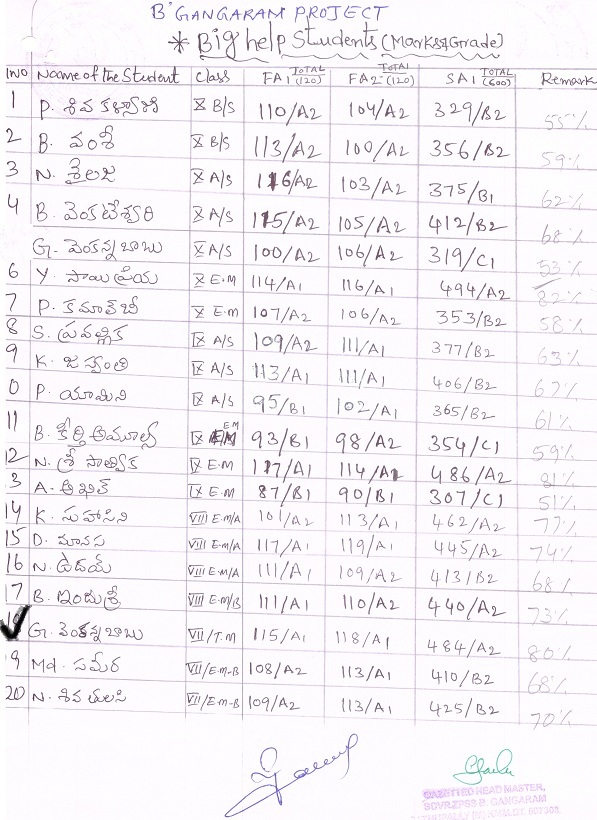 B' GANGARAM PROJECT
* Big help Students (Marks&Grade)
SNO Name of the Student Class FA1 TOTAL (120) FA2 TOTAL (120) SA1 TOTAL (600) Remark
1 P. శివ కళ్యాణి X B/S 110/A2 104/A2 329/B2 55%
2 B. వంశీ X B/S 113/A2 100/A2 356/B2 59%
3 N. శైలజ X A/S 116/A2 103/A2 375/B1 62%
4 B. వెంకటేశ్వరి X A/S 115/A2 105/A2 412/B2 68%
G. వెంకన్న బాబు X A/S 100/A2 106/A2 319/C1 53%
6 Y. సాయి ప్రియ X E.M 114/A1 116/A1 494/A2 82%
7 P. కమాల్‌బీ X E.M 107/A2 106/A2 353/B2 58%
8 S. ప్రవల్లిక IX A/S 109/A2 111/A1 377/B2 63%
9 K. జస్వంతి IX A/S 113/A1 111/A1 406/B2 67%
0 P. యామిని IX A/S 95/B1 102/A1 365/B2 61%
11 B. కీర్తి అమూల్య IX EM 93/B1 98/A2 354/C1 59%
12 N. శ్రీ సాత్విక IX E.M 117/A1 114/A1 486/A2 81%
3 A. అఖిల్ IX E.M 87/B1 90/B1 307/C1 51%
14 K. సుహాసిని VIII E.M/A 101/A2 113/A1 462/A2 77%
15 D. మానస VIII E.M/A 117/A1 119/A1 445/A2 74%
16 N. ఉదయ్ VIII E.M/A 111/A1 109/A2 413/B2 68%
17 B. ఇందుశ్రీ VIII E.M/B 111/A1 110/A2 440/A2 73%
G. వెంకన్నబాబు VII/T.M 115/A1 118/A1 484/A2 80%
9 Md. సమీర VII/E.M-B 108/A2 113/A1 410/B2 68%
20 N. శివ తులసి VII/E.M-B 109/A2 113/A1 425/B2 70%
GAZETTED HEAD MASTER,
B. GANGARAM